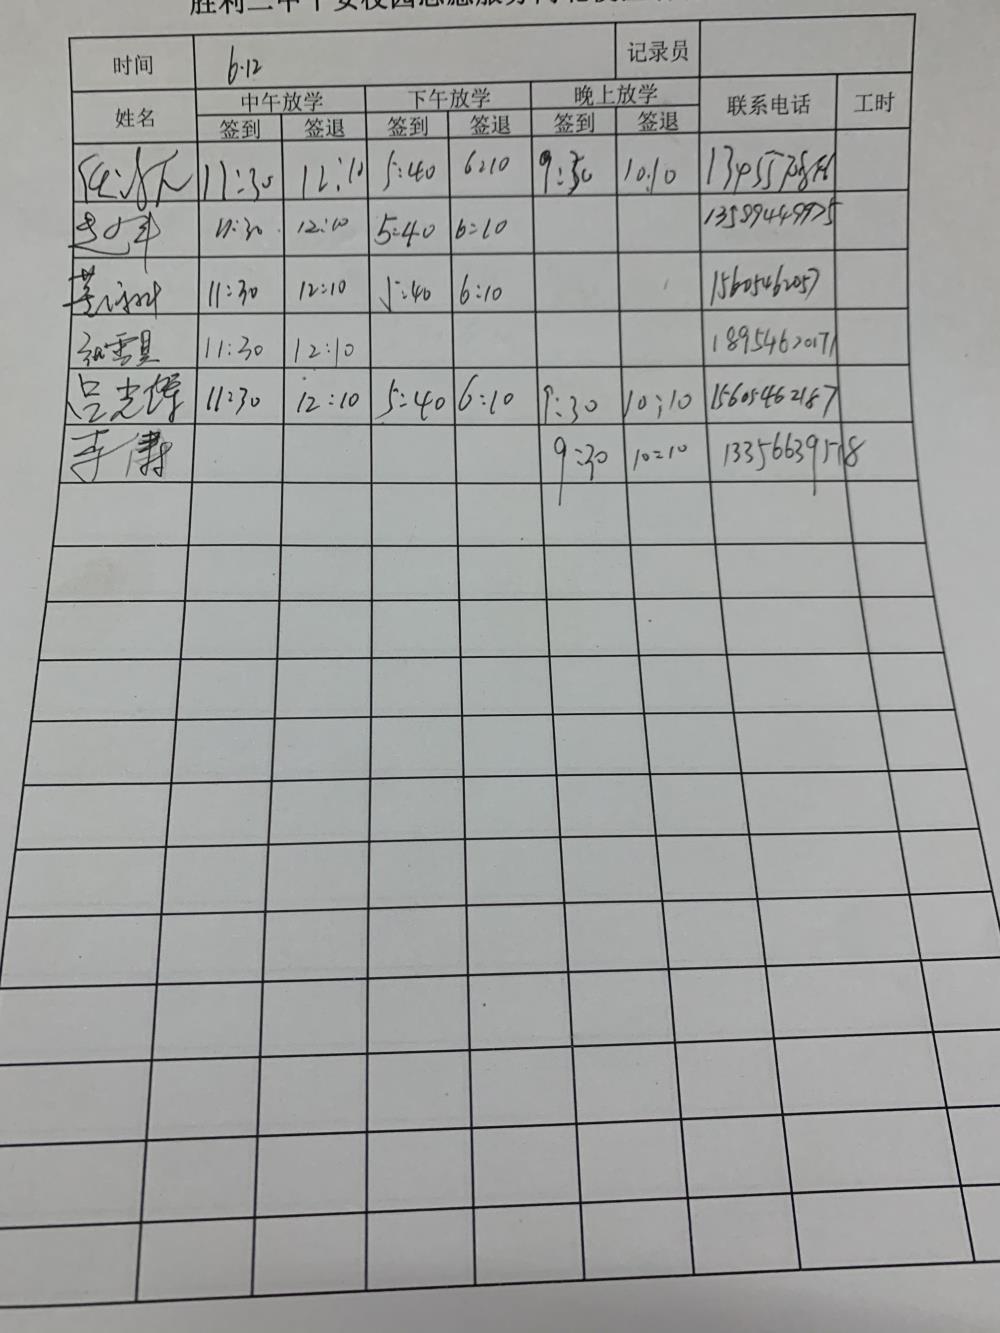 时间 6.12 记录员
姓名 中午放学 下午放学 晚上放学 联系电话 工时
签到 签退 签到 签退 签到 签退
11:30 12:10 5:40 6:10 9:30 10:10
11:30 12:10 5:40 6:10 13589449975
11:30 12:10 5:40 6:10 15605462057
11:30 12:10 18954620171
吕光辉 11:30 12:10 5:40 6:10 9:30 10:10 15605462187
李肃 9:30 10:10 13356639518